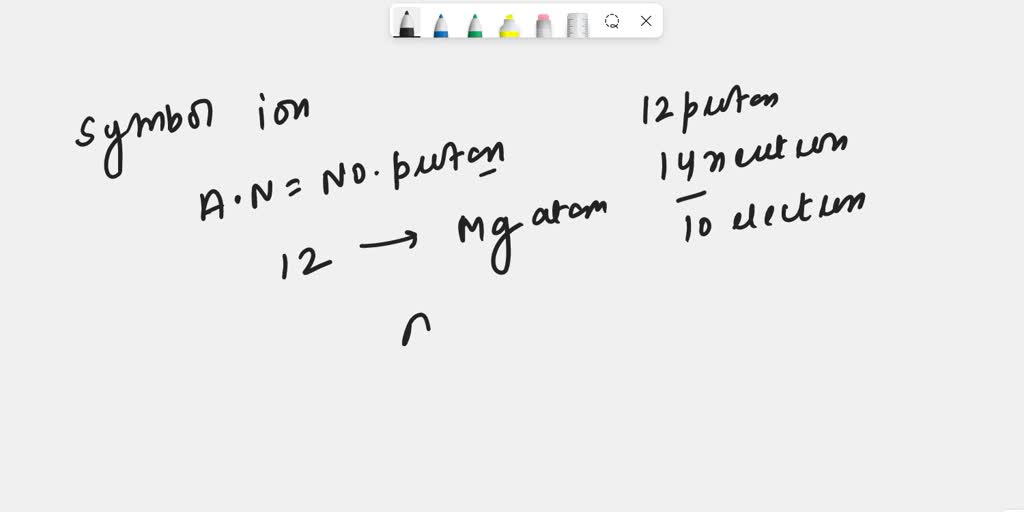 symbol ion
A.N = NO. proton
12 → Mg atom
12 proton
14 neutron
10 electron